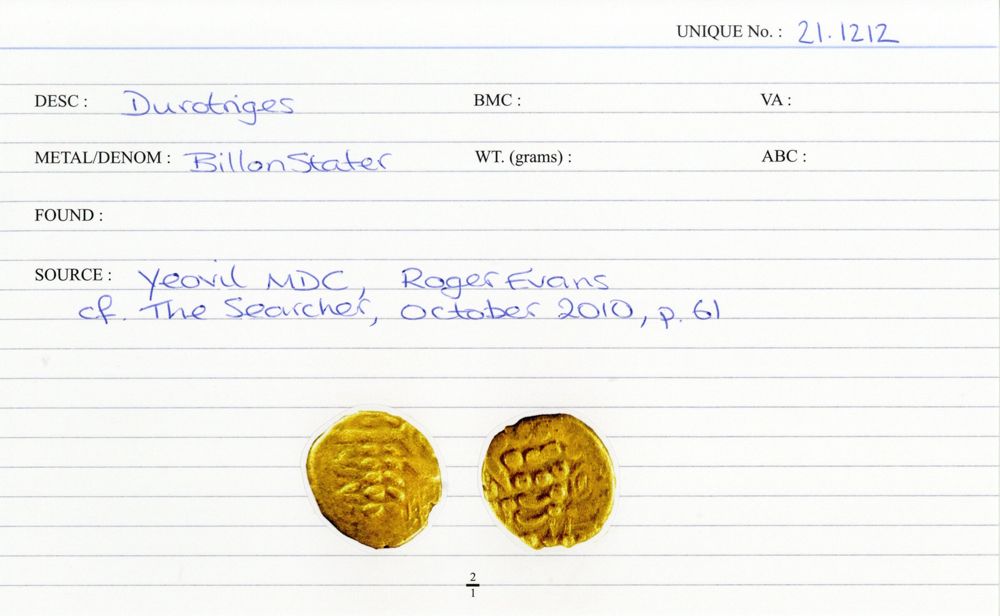 UNIQUE No. : 21.1212
DESC : Durotriges BMC : VA :
METAL/DENOM : Billon Stater WT. (grams) : ABC :
FOUND :
SOURCE : Yeovil MDC, Roger Evans
cf. The Searcher, October 2010, p. 61
2
1